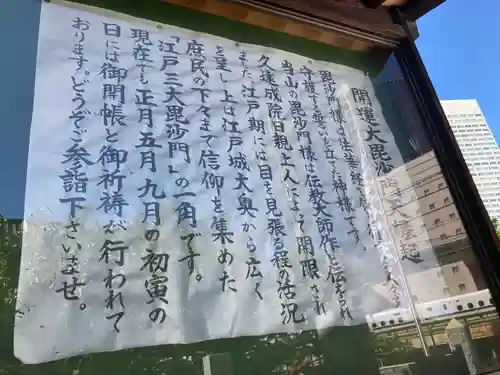 開運大毘沙門天縁起
毘沙門様は法華経
守護する誓いを立てた神様です。
当山の毘沙門様は伝教大師作と伝えられ
久遠成院日親上人によって開眼され
また、江戸期には目を見張る程の活況
を呈し上は江戸城大奥から広く
庶民の下々まで信仰を集めた
「江戸三大毘沙門」の一角です。
現在でも正月五月九月の初寅の
日には御開帳と御祈祷が行われて
おります。どうぞご参詣下さいませ。